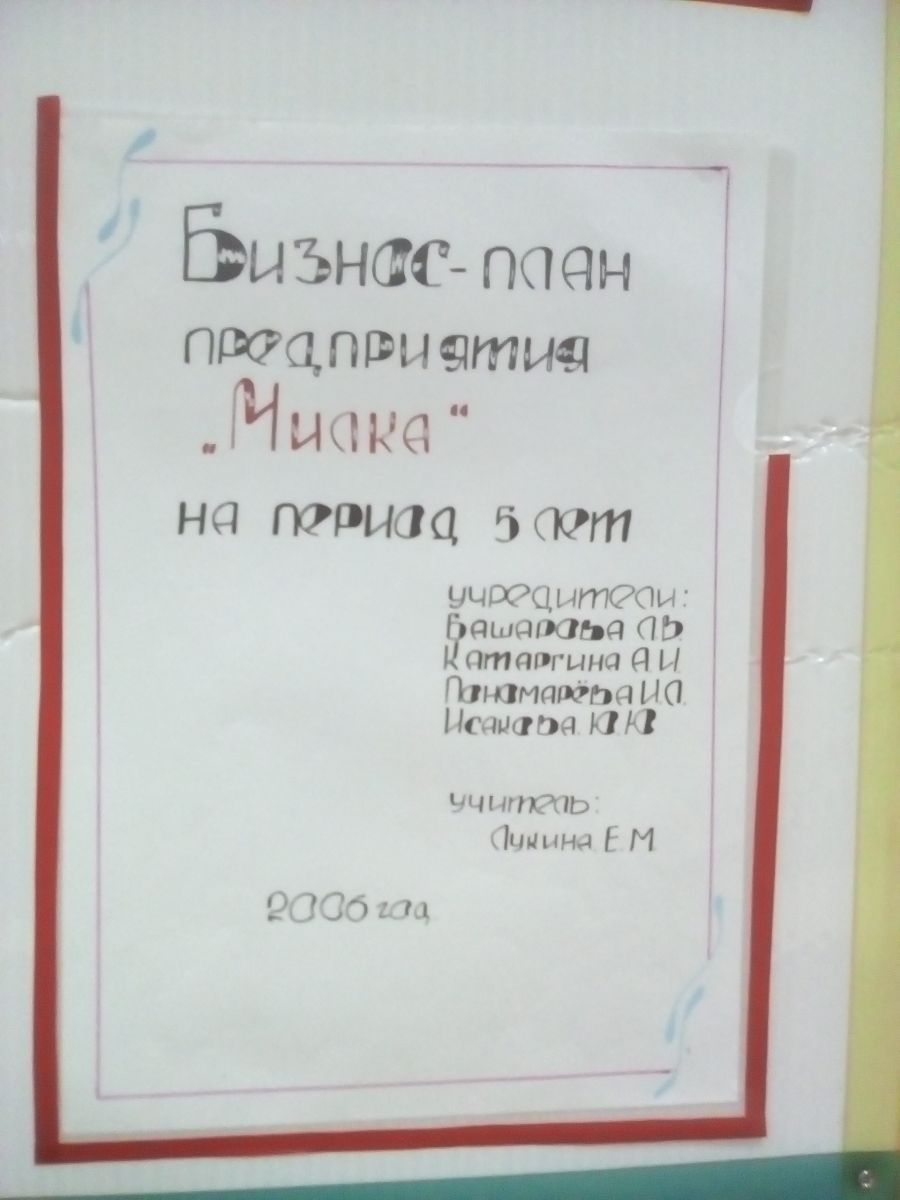 Бизнес-план
предприятия
„Милка“
на период 5 лет
учредители:
Башарова Л.В.
Катаргина А.И.
Пономарёва И.Л.
Исакова. Ю.Ю
учитель:
Лукина. Е.М.
2006 год